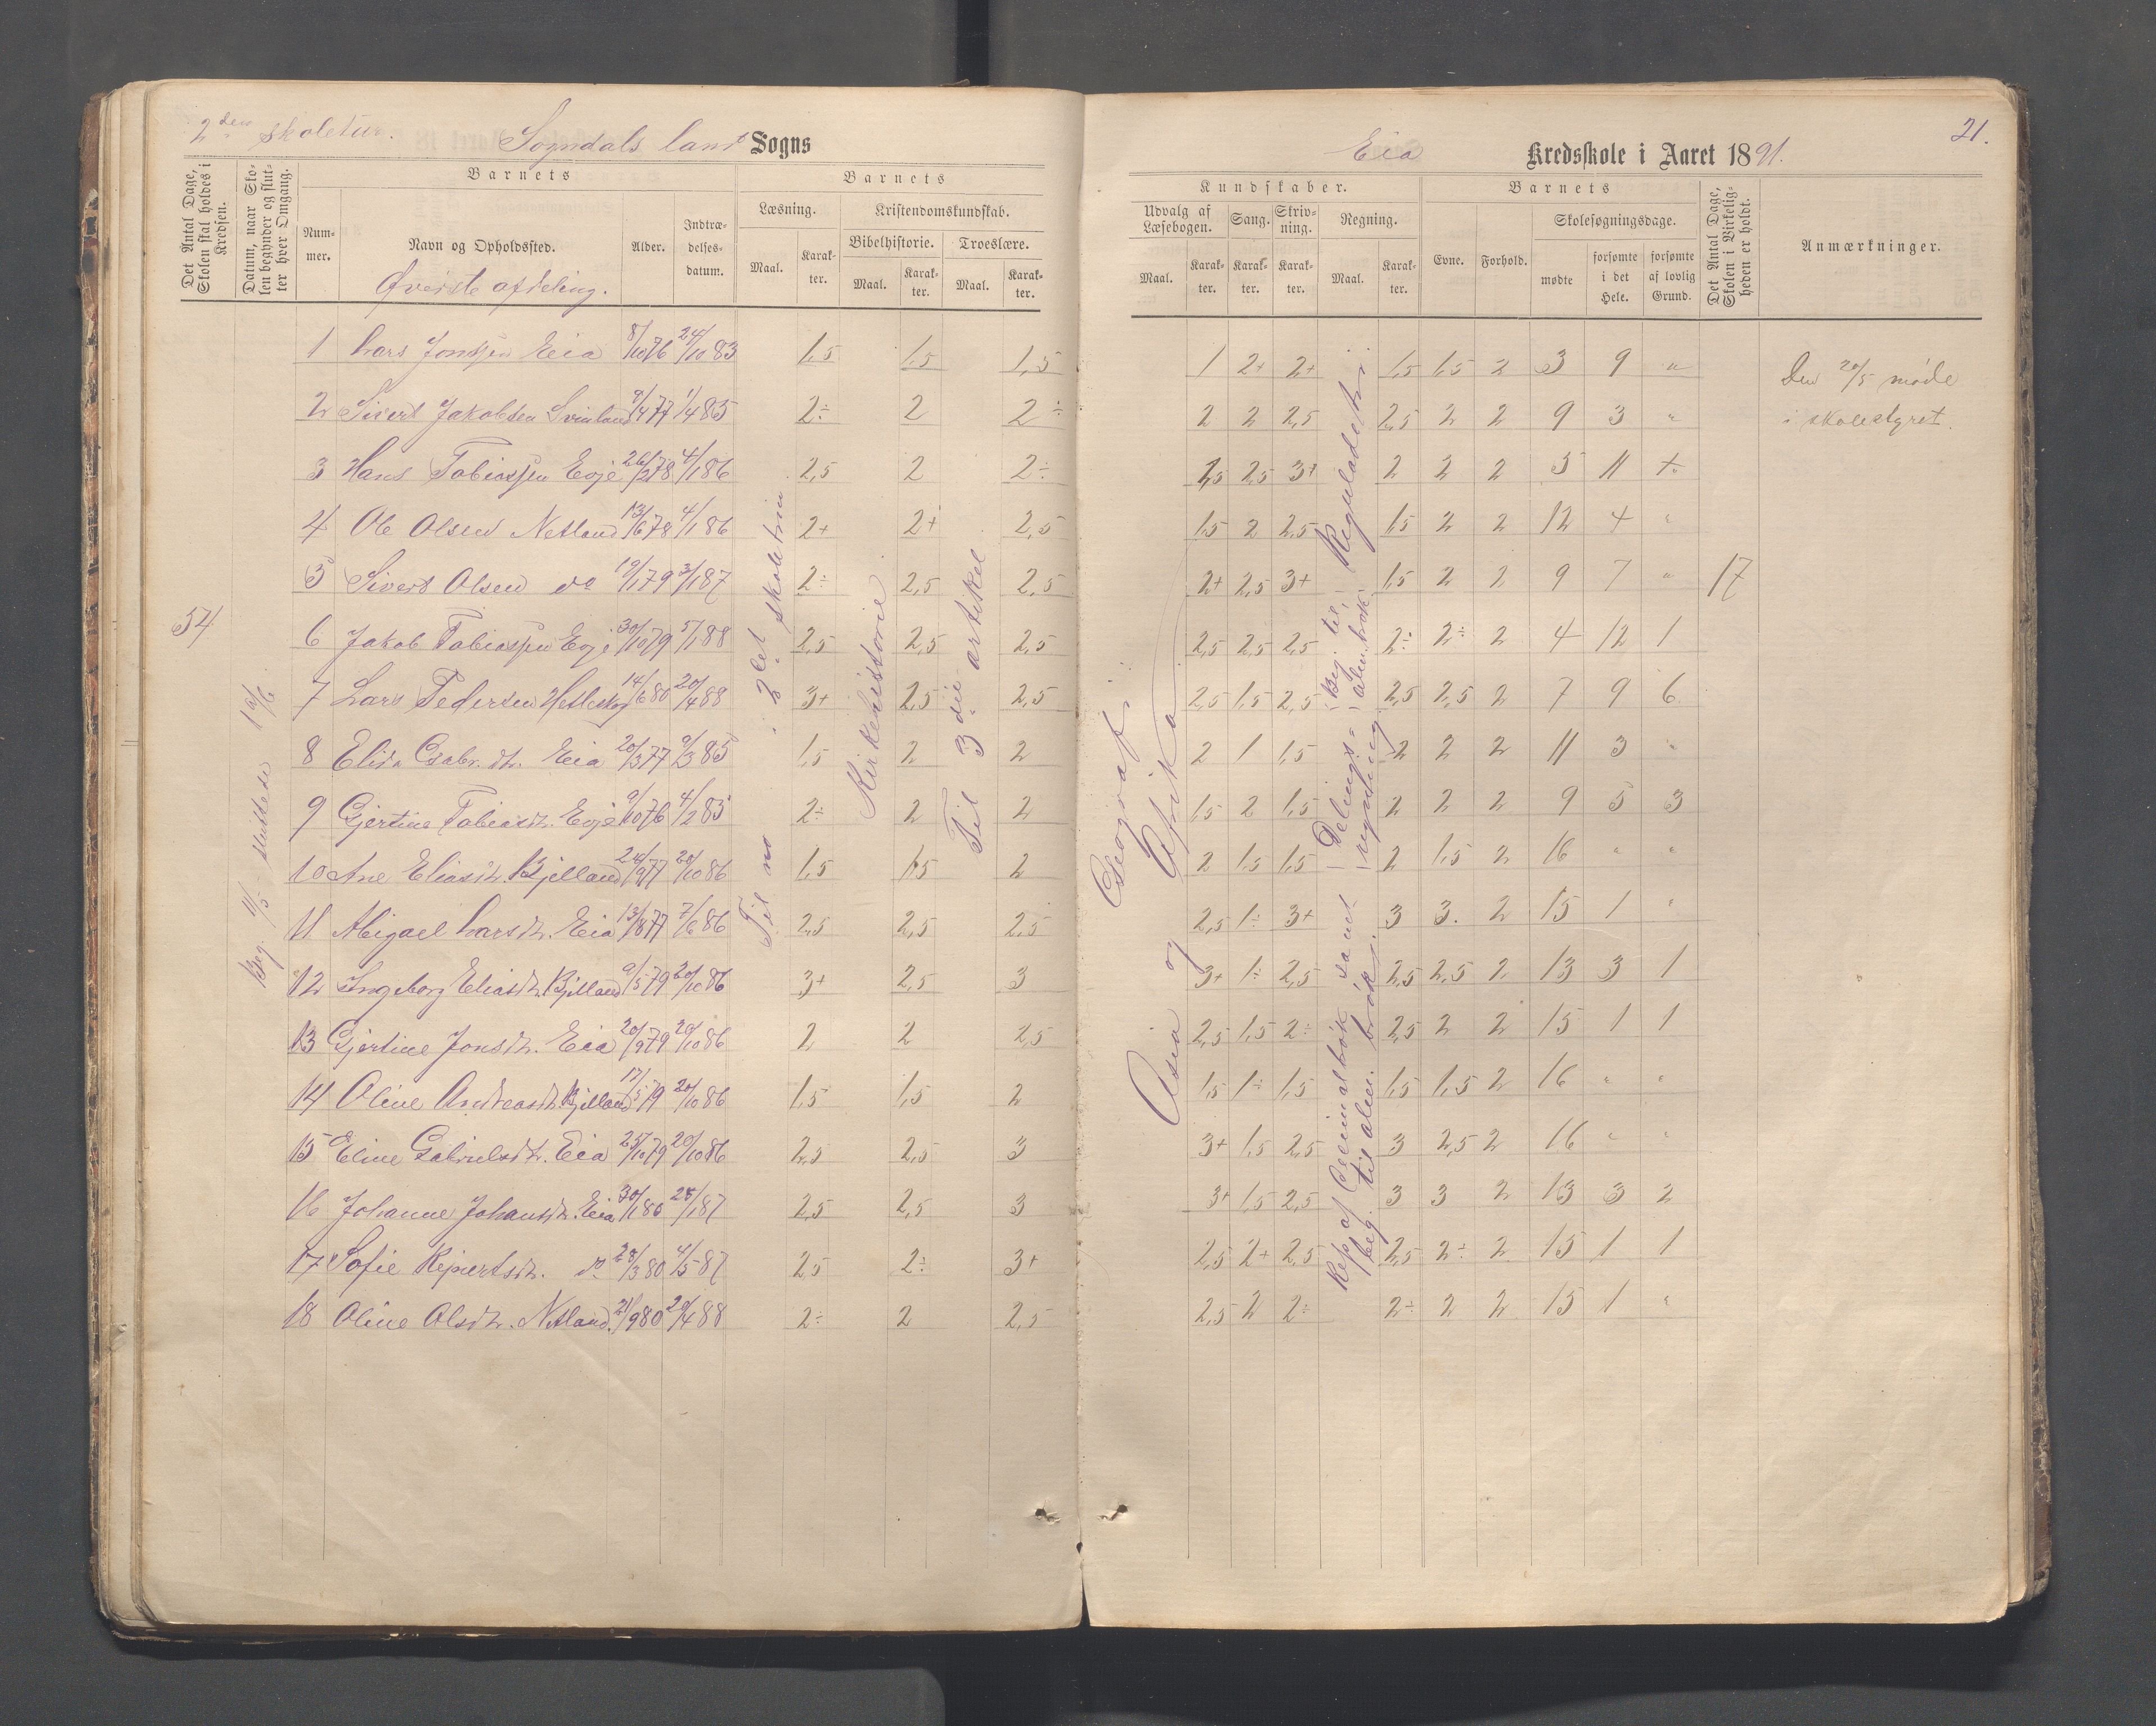 2den skoletur. Sogndals land Sogns
Det Antal Dage, Skolen skal holdes i Kredsen.
Datum, naar Skolen begynder og slutter hver Omgang.
Barnets
Nummer.
Navn og Opholdssted.
Alder.
Indtrædelsesdatum.
Barnets
Læsning.
Kristendomskundskab.
Maal.
Karakter.
Bibelhistorie.
Troeslære.
Maal.
Karakter.
Maal.
Karakter.
Øverste afdeling.
1 Lars Jonsen Eia 8/10 76 24/10 83 1,5 1,5 1,5
2 Sivert Jakobsen Svinland 8/4 77 1/4 85 2÷ 2 2÷
3 Hans Tobiassen Eoje 26/2 78 4/1 86 2,5 2 2÷
4 Ole Olsen Netland 13/6 78 4/1 86 2+ 2+ 2,5
5 Sivert Olsen do 19/1 79 3/1 87 2÷ 2,5 2,5
6 Jakob Tobiassen Eoje 30/10 79 5/1 88 2,5 2,5 2,5
7 Lars Pedersen 14/6 80 20/4 88 3+ 2,5 2,5
8 Elisa Gabr.dt. Eia 20/3 77 9/3 85 1,5 2 2
9 Gjertine Tobiasdt. Eoje 9/10 76 4/2 85 2÷ 2 2
10 Ane Eliasdt. Bjelland 24/9 77 20/10 86 1,5 1,5 2
11 Abigael Larsdt. Eia 13/8 77 7/6 86 2,5 2,5 2,5
12 Ingeborg Eliasdt. Bjelland 9/5 79 20/10 86 3+ 2,5 3
13 Gjertine Jonsdt. Eia 20/9 79 20/10 86 2 2 2,5
14 Oline Andreasdt. Bjelland 17/5 79 20/10 86 1,5 1,5 2
15 Eline Gabrielsdt. Eia 25/10 79 20/10 86 2,5 2,5 3
16 Johanne Johansdt. Eia 30/1 80 28/1 87 2,5 2,5 3
17 Sofie Rejnertsdt. do 28/3 80 4/5 87 2,5 2÷ 3+
18 Oline Olsdt. Netland. 21/9 80 20/4 88 2÷ 2 2,5
54
Beg. 11/5 sluttede
Til no i 2det skoletrin
Kirkehistorie
Til 3die artikel
Eia Kredsskole i Aaret 1891.
21.
Kundskaber.
Udvalg af Læsebogen.
Sang.
Skrivning.
Regning.
Maal.
Karakter.
Karakter.
Karakter.
Maal.
Karakter.
Barnets
Evne.
Forhold.
Skolesøgningsdage.
mødte
forsømte i det Hele.
forsømte af lovlig Grund.
Det Antal Dage, Skolen i Virkeligheden er holdt.
Anmærkninger.
1 2+ 2+ 1,5 1,5 2 3 9 "
2 2 2,5 2,5 2 2 9 3 "
2,5 2,5 3+ 2 2 2 5 11
1,5 2 2,5 1,5 2 2 12 4 "
2+ 2,5 3+ 1,5 2 2 9 7 " 17
2,5 2,5 2,5 2÷ 2÷ 2 4 12 1
2,5 1,5 2,5 2,5 2,5 2 7 9 6
2 1 1,5 2 2 2 11 3 "
1,5 2 1,5 2 2 2 9 5 3
2 1,5 1,5 2 1,5 2 16 " "
2,5 1÷ 3+ 3 3. 2 15 1 "
3+ 1÷ 2,5 2,5 2,5 2 13 3 1
2,5 1,5 2÷ 2,5 2 2 15 1 1
1,5 1÷ 1,5 1,5 1,5 2 16 " "
3+ 1,5 2,5 3 2,5 2 16 " "
3+ 1,5 2,5 3 3 2 13 3 2
2,5 2+ 2,5 2,5 2÷ 2 15 1 1
2,5 2 2÷ 2÷ 2 2 15 1 "
Geografi
Asia og Afrika
Rep af Decimalbrøk samt Delingsregning
beg. til alm. brøk.
Beg. til alm. brøk.
Reguladetri
Den 20/5 møde
i skolestyret.